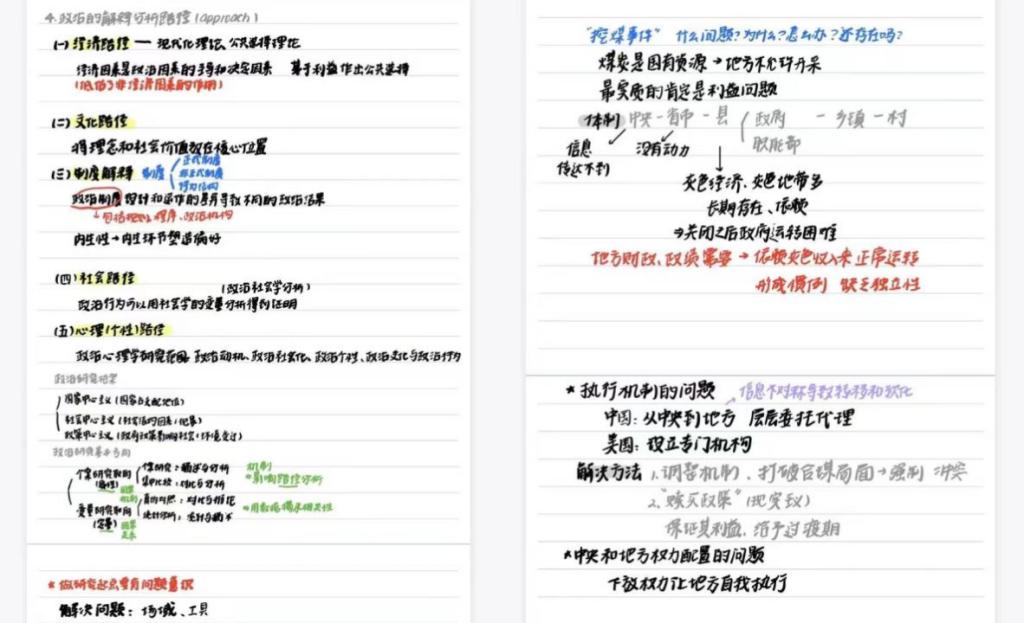 4.政治的解释分析路径(approach)
(一)经济路径 — 现代化理论、公共选择理论
经济因素是政治因素的 和决定因素 基于利益作出公共选择
(低估了非经济因素的作用)
(二)文化路径
将理念和社会价值放在核心位置
(三)制度解释 制度
正式制度
非正式制度
行为结构
政治制度设计和运作的差异导致不同的政治结果
→包括规则、程序、政治机构
内生性→内生环节塑造偏好
(四)社会路径 (政治社会学分析)
政治行为可以用社会学的变量分析得到证明
(五)心理(个性)路径
政治心理学研究范围 政治动机、政治社会化、政治个性、政治文化与政治行为
政治研究框架
国家中心主义(国家占支配地位)
社会中心主义(社会活的因素)
政策中心主义(政府政策影响社会)
政治研究基本方向
个案研究取向
个案研究:描述与分析
集中比较:对比与分析
机制
*影响路径分析
变量研究取向
真的对照:对比与推论
统计分析:
*用数据揭示相关性
*做研究起点要有问题意识
解决问题:场域、工具
"挖煤事件" 什么问题?为什么?怎么办?还存在吗?
煤炭是国有资源→地方不允许开采
最实质的肯定是利益问题
体制 中央—省市—县 政府 —乡镇—村
职能部
信息传达不到
没有动力
灰色经济、灰色地带多
长期存在、依赖
⇒关闭之后政府运转困难
地方财政、政绩需要→依赖灰色收入来正常运转
形成惯例 缺乏独立性
*执行机制的问题 信息不对称导致转移和软化
中国:从中央到地方 层层委托代理
美国:设立专门机构
解决方法 1.调整机制、打破官煤局面→强制 冲突
2."赎买政策"(现实议)
保证其利益、给予过渡期
*中央和地方权力配置的问题
下放权力让地方自我执行